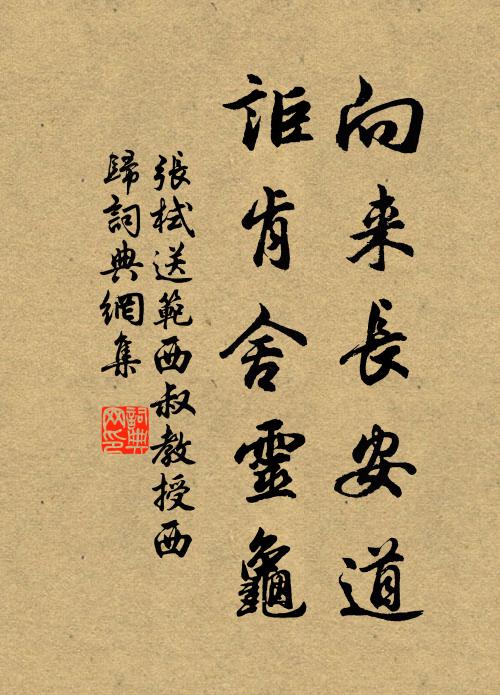 向来長安道
詎肯舍靈龜
張栻送範西叔教授西
歸詞典網集
詞典网印